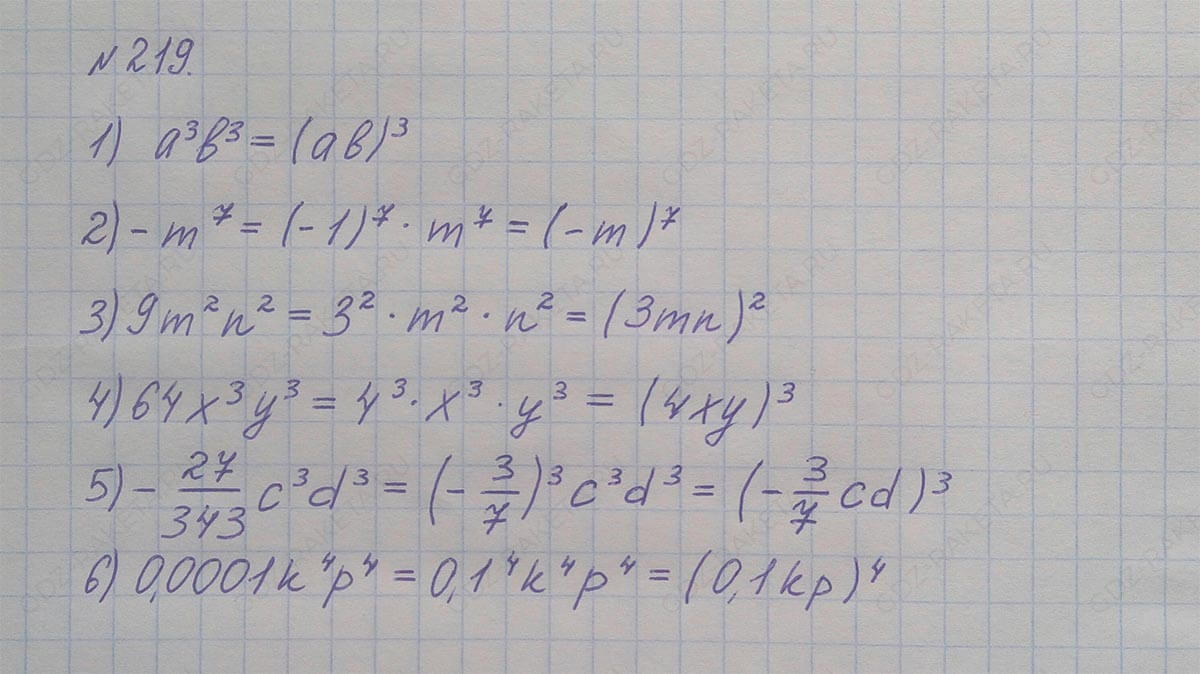 №219.
1) a³b³ = (ab)³
2) - m⁷ = (-1)⁷ · m⁷ = (-m)⁷
3) 9m²n² = 3² · m² · n² = (3mn)²
4) 64x³y³ = 4³ · x³ · y³ = (4xy)³
5) - 27/343 c³d³ = (- 3/7)³ c³d³ = (- 3/7 cd)³
6) 0,0001k⁴p⁴ = 0,1⁴k⁴p⁴ = (0,1kp)⁴
GDZ-RAKETA.RU